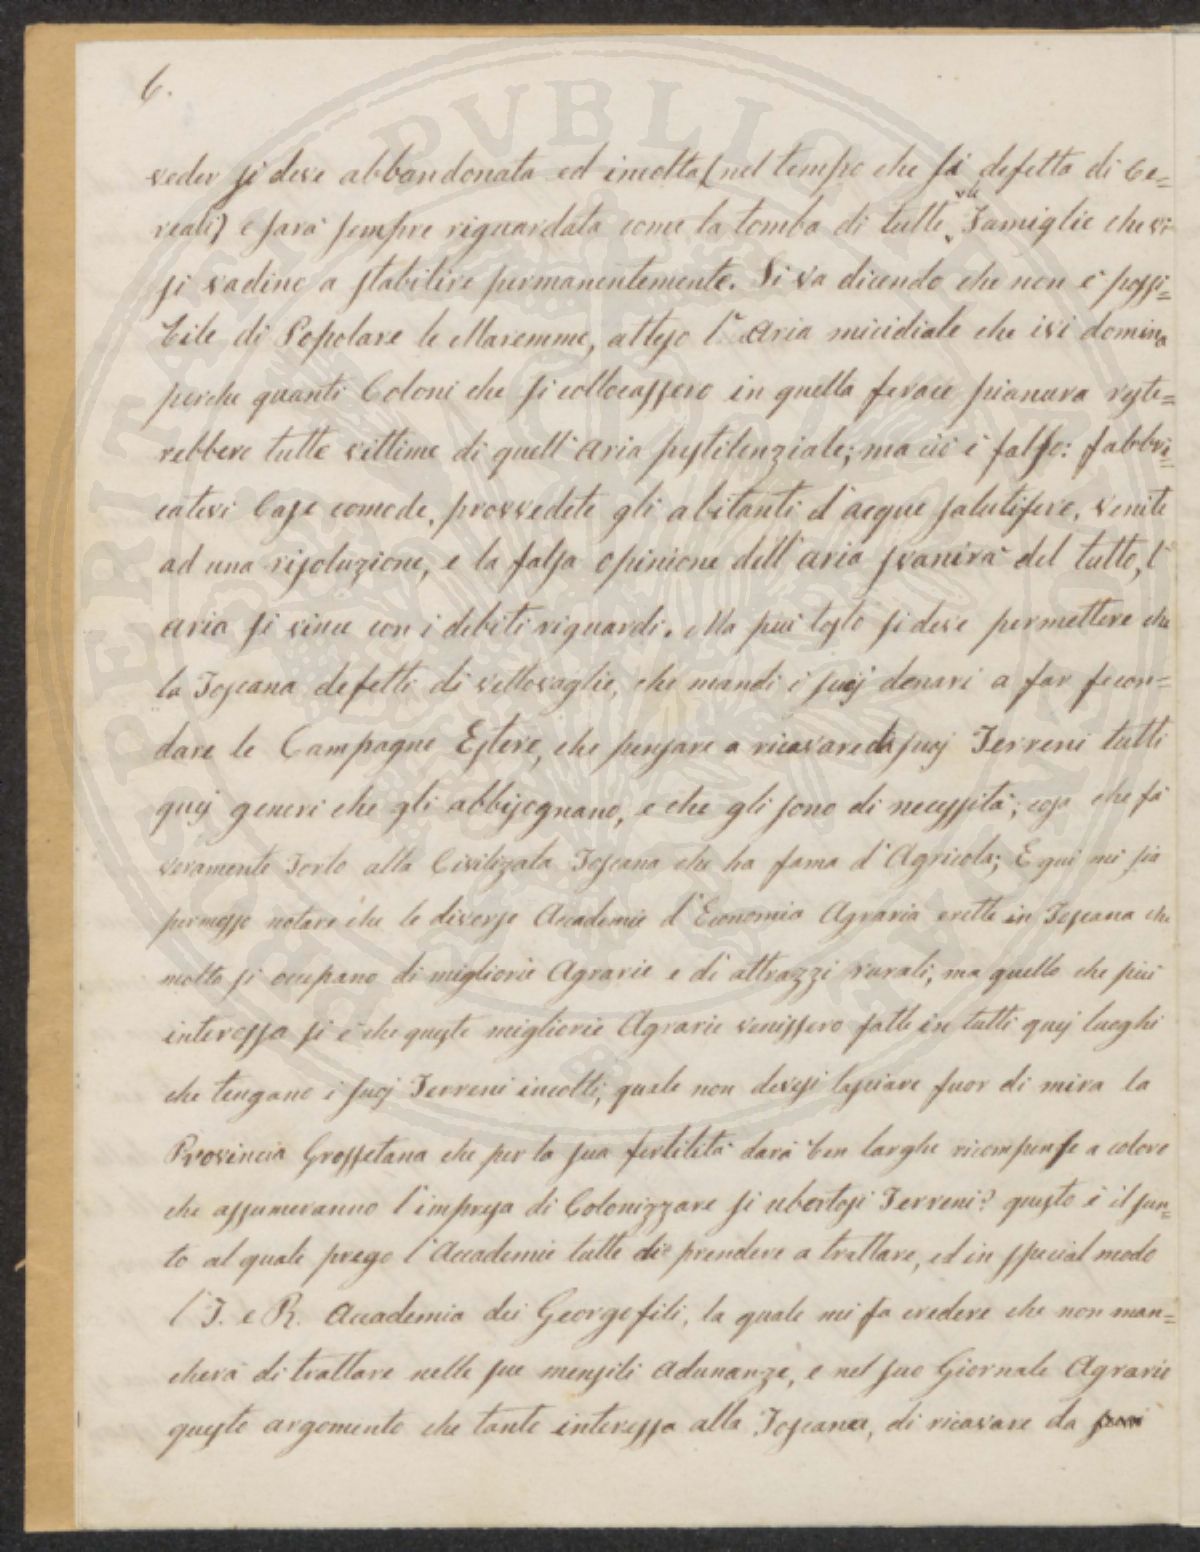 6.
veder si deve abbandonata ed incolta (nel tempo che si difetta di Ce=
reali) e sarà sempre riguardata come la tomba di tutte le Famiglie che vi
si vadino a stabilire permanentemente. Si va dicendo che non è possi=
bile di Popolare le Maremme, atteso l'Aria micidiale che ivi domina
perche quanti Coloni che si collocassero in quella ferace pianura reste=
rebbero tutte vittime di quell'aria pestilenziale; ma ciò è falso: fabbri=
catevi Case comode, provvedete gli abitanti d'acque salutifere, venite
ad una risoluzione, e la falsa opinione dell'aria svanirà del tutto, l'
aria si vince con i debiti riguardi. Ma più tosto si deve permettere che
la Toscana difetti di vettovaglie, che mandi i suoj denari a far fecon=
dare le Campagne Estere, che pensare a ricavare da suoj Terreni tutti
quej generi che gli abbisognano, e che gli sono di necessità; cosa che fà
veramente Torto alla Civilizata Toscana che ha fama d'Agricola; E qui mi sia
permesso notare che le diverse Accademie d'Economia Agraria erette in Toscana che
molto si occupano di migliorie Agrarie e di attrazzi rurali, ma quello che più
interessa si è che queste migliorie Agrarie venissero fatte in tutti quej luoghi
che tengano i suoj Terreni incolti, quale non devesi lasciare fuor di mira la
Provincia Grossetana che per la sua fertilità darà ben larghe ricompense a coloro
che assumeranno l'impresa di Colonizzare si ubertosi Terreni? questo è il pun=
to al quale prego l'Accademie tutte di prendere a trattare, ed in special modo
l'I. e R. Accademia dei Georgofili, la quale mi fa credere che non man=
cherà di trattare nelle sue mensili adunanze, e nel suo Giornale Agrario
questo argomento che tanto interessa alla Toscana, di ricavare da